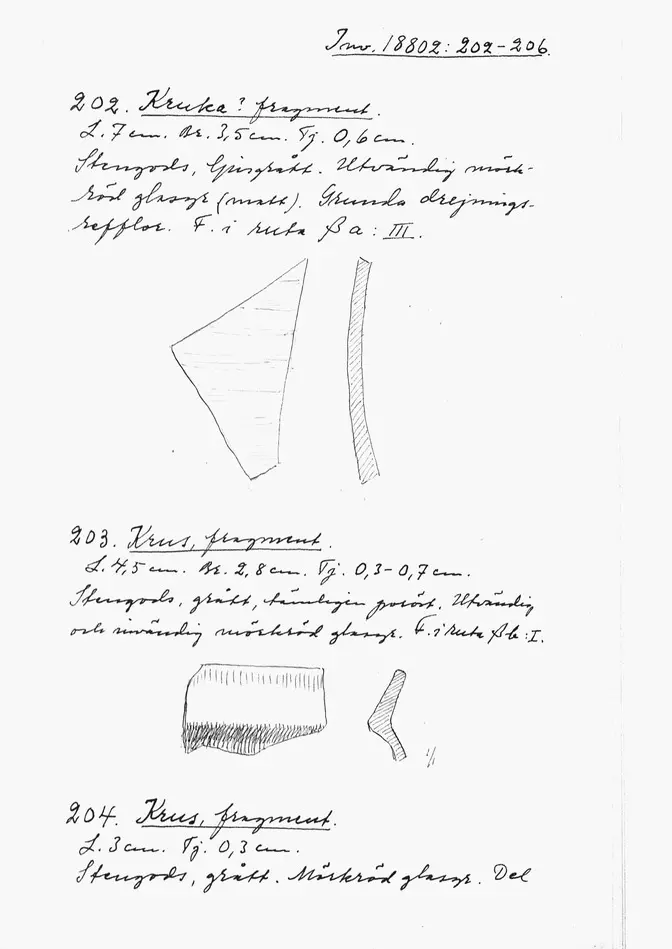 Inv. 18802: 202-206.
202. Kruka? fragment.
L. 7 cm. Br. 3,5 cm. Tj. 0,6 cm.
Stengods, ljusgrått. Utvändig mörk-
röd glasyr (matt). Grunda drejnings-
refflor. F. i ruta βa: III.
203. Krus, fragment.
L. 4,5 cm. Br. 2,8 cm. Tj. 0,3-0,7 cm.
Stengods, grått, tämligen poröst. Utvändig
och invändig mörkröd glasyr. F. i ruta βb: I.
1/1
204. Krus, fragment.
L. 3 cm. Tj. 0,3 cm.
Stengods, grått. Mörkröd glasyr. Del